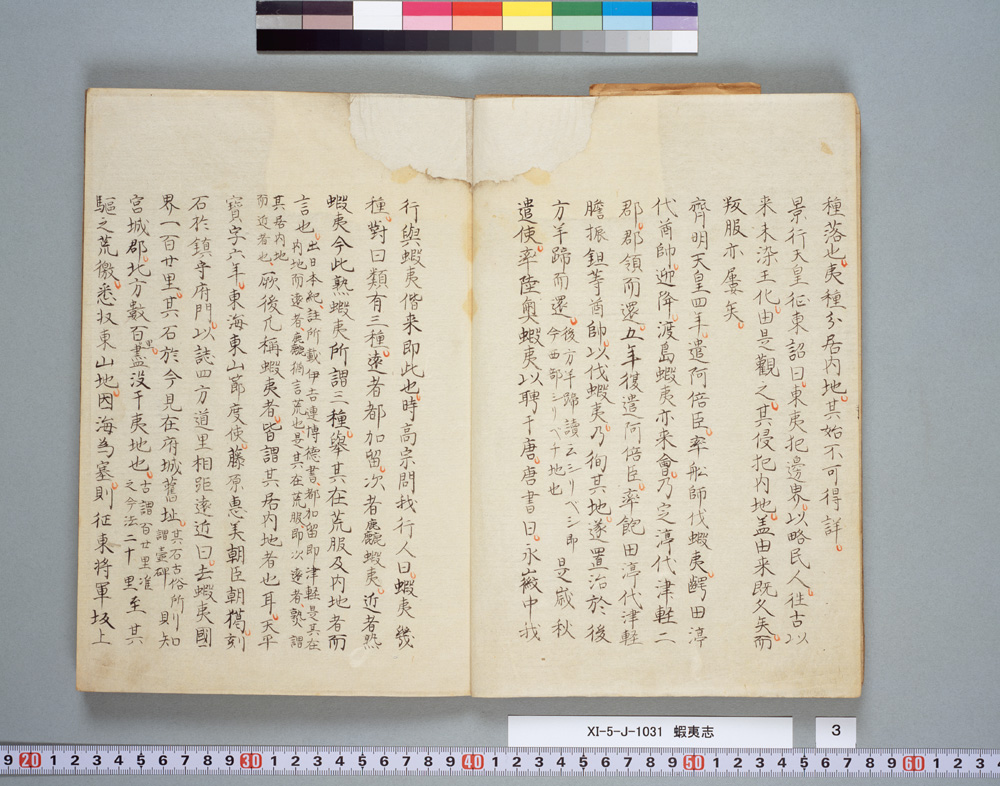 種落也夷種分居内地其始不可得詳
景行天皇征東詔曰東夷犯邊界以略民人往古以
来未染王化由是觀之其侵犯内地盖由来既久矣而
叛服亦屡矣
齊明天皇四年遣阿倍臣率舩師伐蝦夷齶田渟
代酋帥迎降渡島蝦夷亦来會乃定渟代津軽二
郡郡領而還五年復遣阿倍臣率飽田渟代津軽
膽振鉏等酋帥以伐蝦夷乃徇其地遂置治於後
方羊蹄而還後方羊蹄讀云シリベシ即今西部シリベチ地也是歳秋
遣使率陸奥蝦夷以聘于唐唐書曰永徽中我
行與蝦夷偕来即此也時高宗問我行人曰蝦夷幾
種對曰類有三種遠者都加留次者麁蝦夷近者熟
蝦夷今此熟蝦夷所謂三種擧其在荒服及内地者而
言也出日本紀註所載伊吉連博德書都加留即津軽是其在内地而遠者麁猶言荒也是其在荒服即次遠者熟謂
其居内地而近者也厥後凡稱蝦夷者皆謂其居内地者也耳天平
寳字六年東海東山節度使藤原惠美朝臣朝獦刻
石於鎮守府門以誌四方道里相距遠近曰去蝦夷國
界一百廿里其石於今見在府城舊址其石古俗所謂壷碑則知
宮城郡北方數百里盡没于夷地也古謂百廿里准之今法二十里至其
驅之荒徼悉収東山地因海為塞則征東将軍坂上
XI-5-J-1031 蝦夷志
3
9 20 1 2 3 4 5 6 7 8 9 30 1 2 3 4 5 6 7 8 9 40 1 2 3 4 5 6 7 8 9 50 1 2 3 4 5 6 7 8 9 60 1 2 3